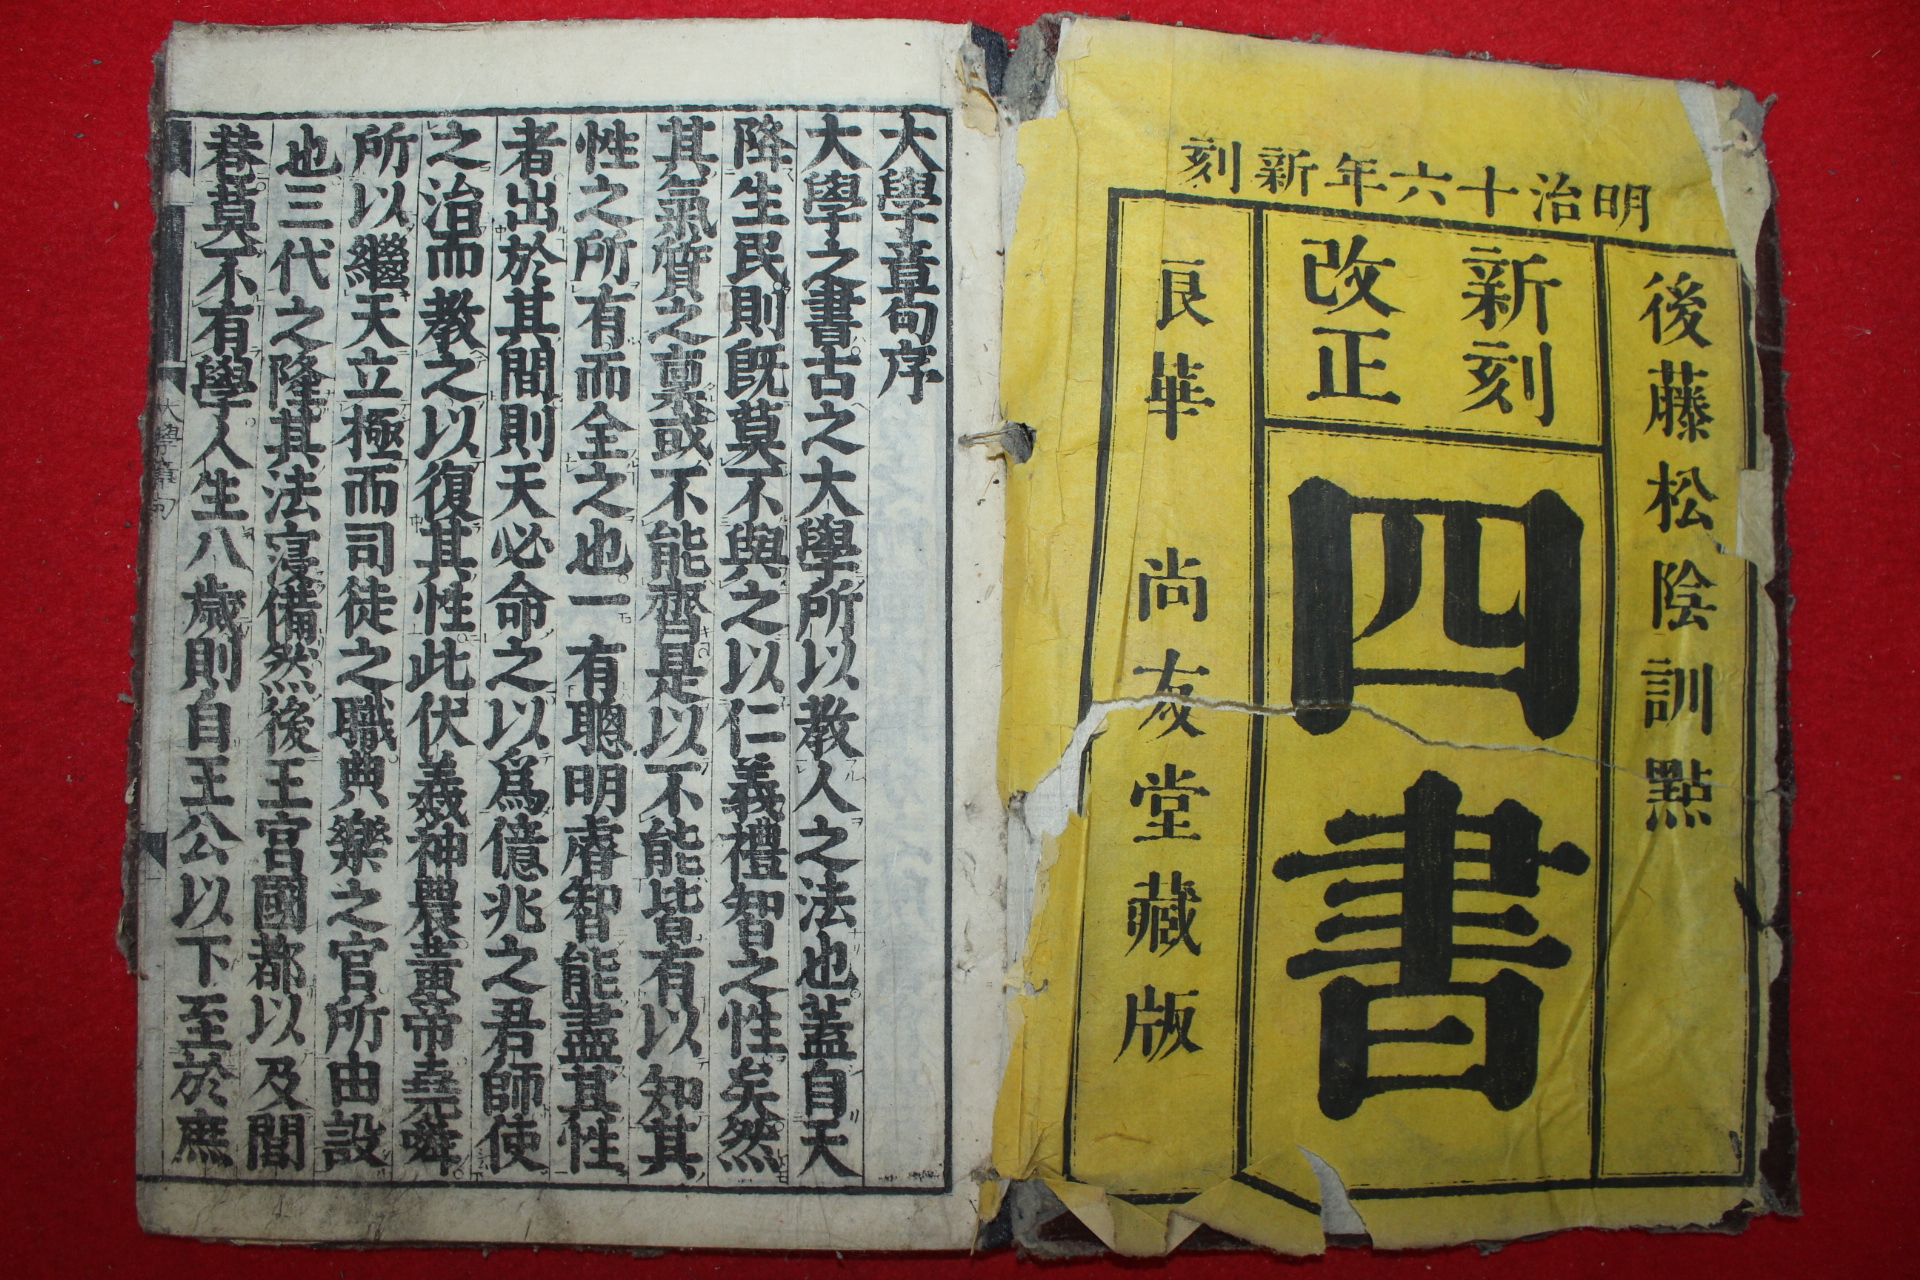 明治十六年新刻
後藤松陰訓點
新刻
改正
四書
浪華 尚友堂藏版
大學章句序
大學之書古之大學所以教人之法也蓋自天
降生民則既莫不與之以仁義禮智之性矣然
其氣質之稟或不能齊是以不能皆有以知其
性之所有而全之也一有聰明睿智能盡其性
者出於其間則天必命之以爲億兆之君師使
之治而教之以復其性此伏羲神農黃帝堯舜
所以繼天立極而司徒之職典樂之官所由設
也三代之隆其法寖備然後王宮國都以及閭
巷莫不有學人生八歲則自王公以下至於庶
大學章句